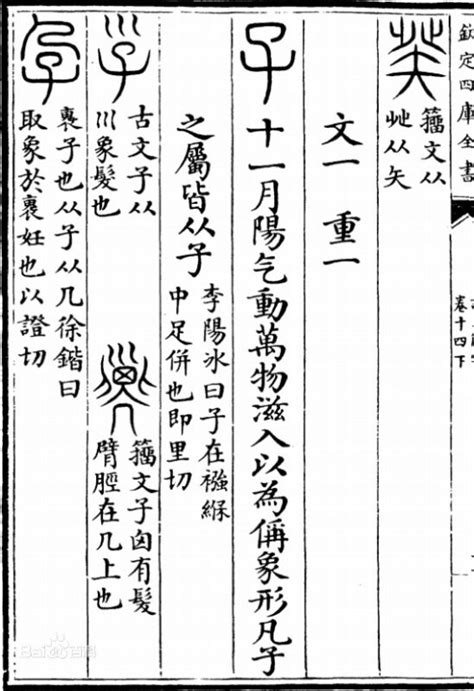 欽定四庫全書
卷十四下
籒文从
癶从矢
文一 重一
子 十一月陽气動萬物滋入以為偁象形凡子
之屬皆从子
李陽冰曰子在襁緥
中足併也即里切
古文子从
巛象髮也
籒文子囟有髮
臂脛在几上也
孕
褢子也从子从几徐鍇曰
取象於褢妊也以證切
Baidu百科